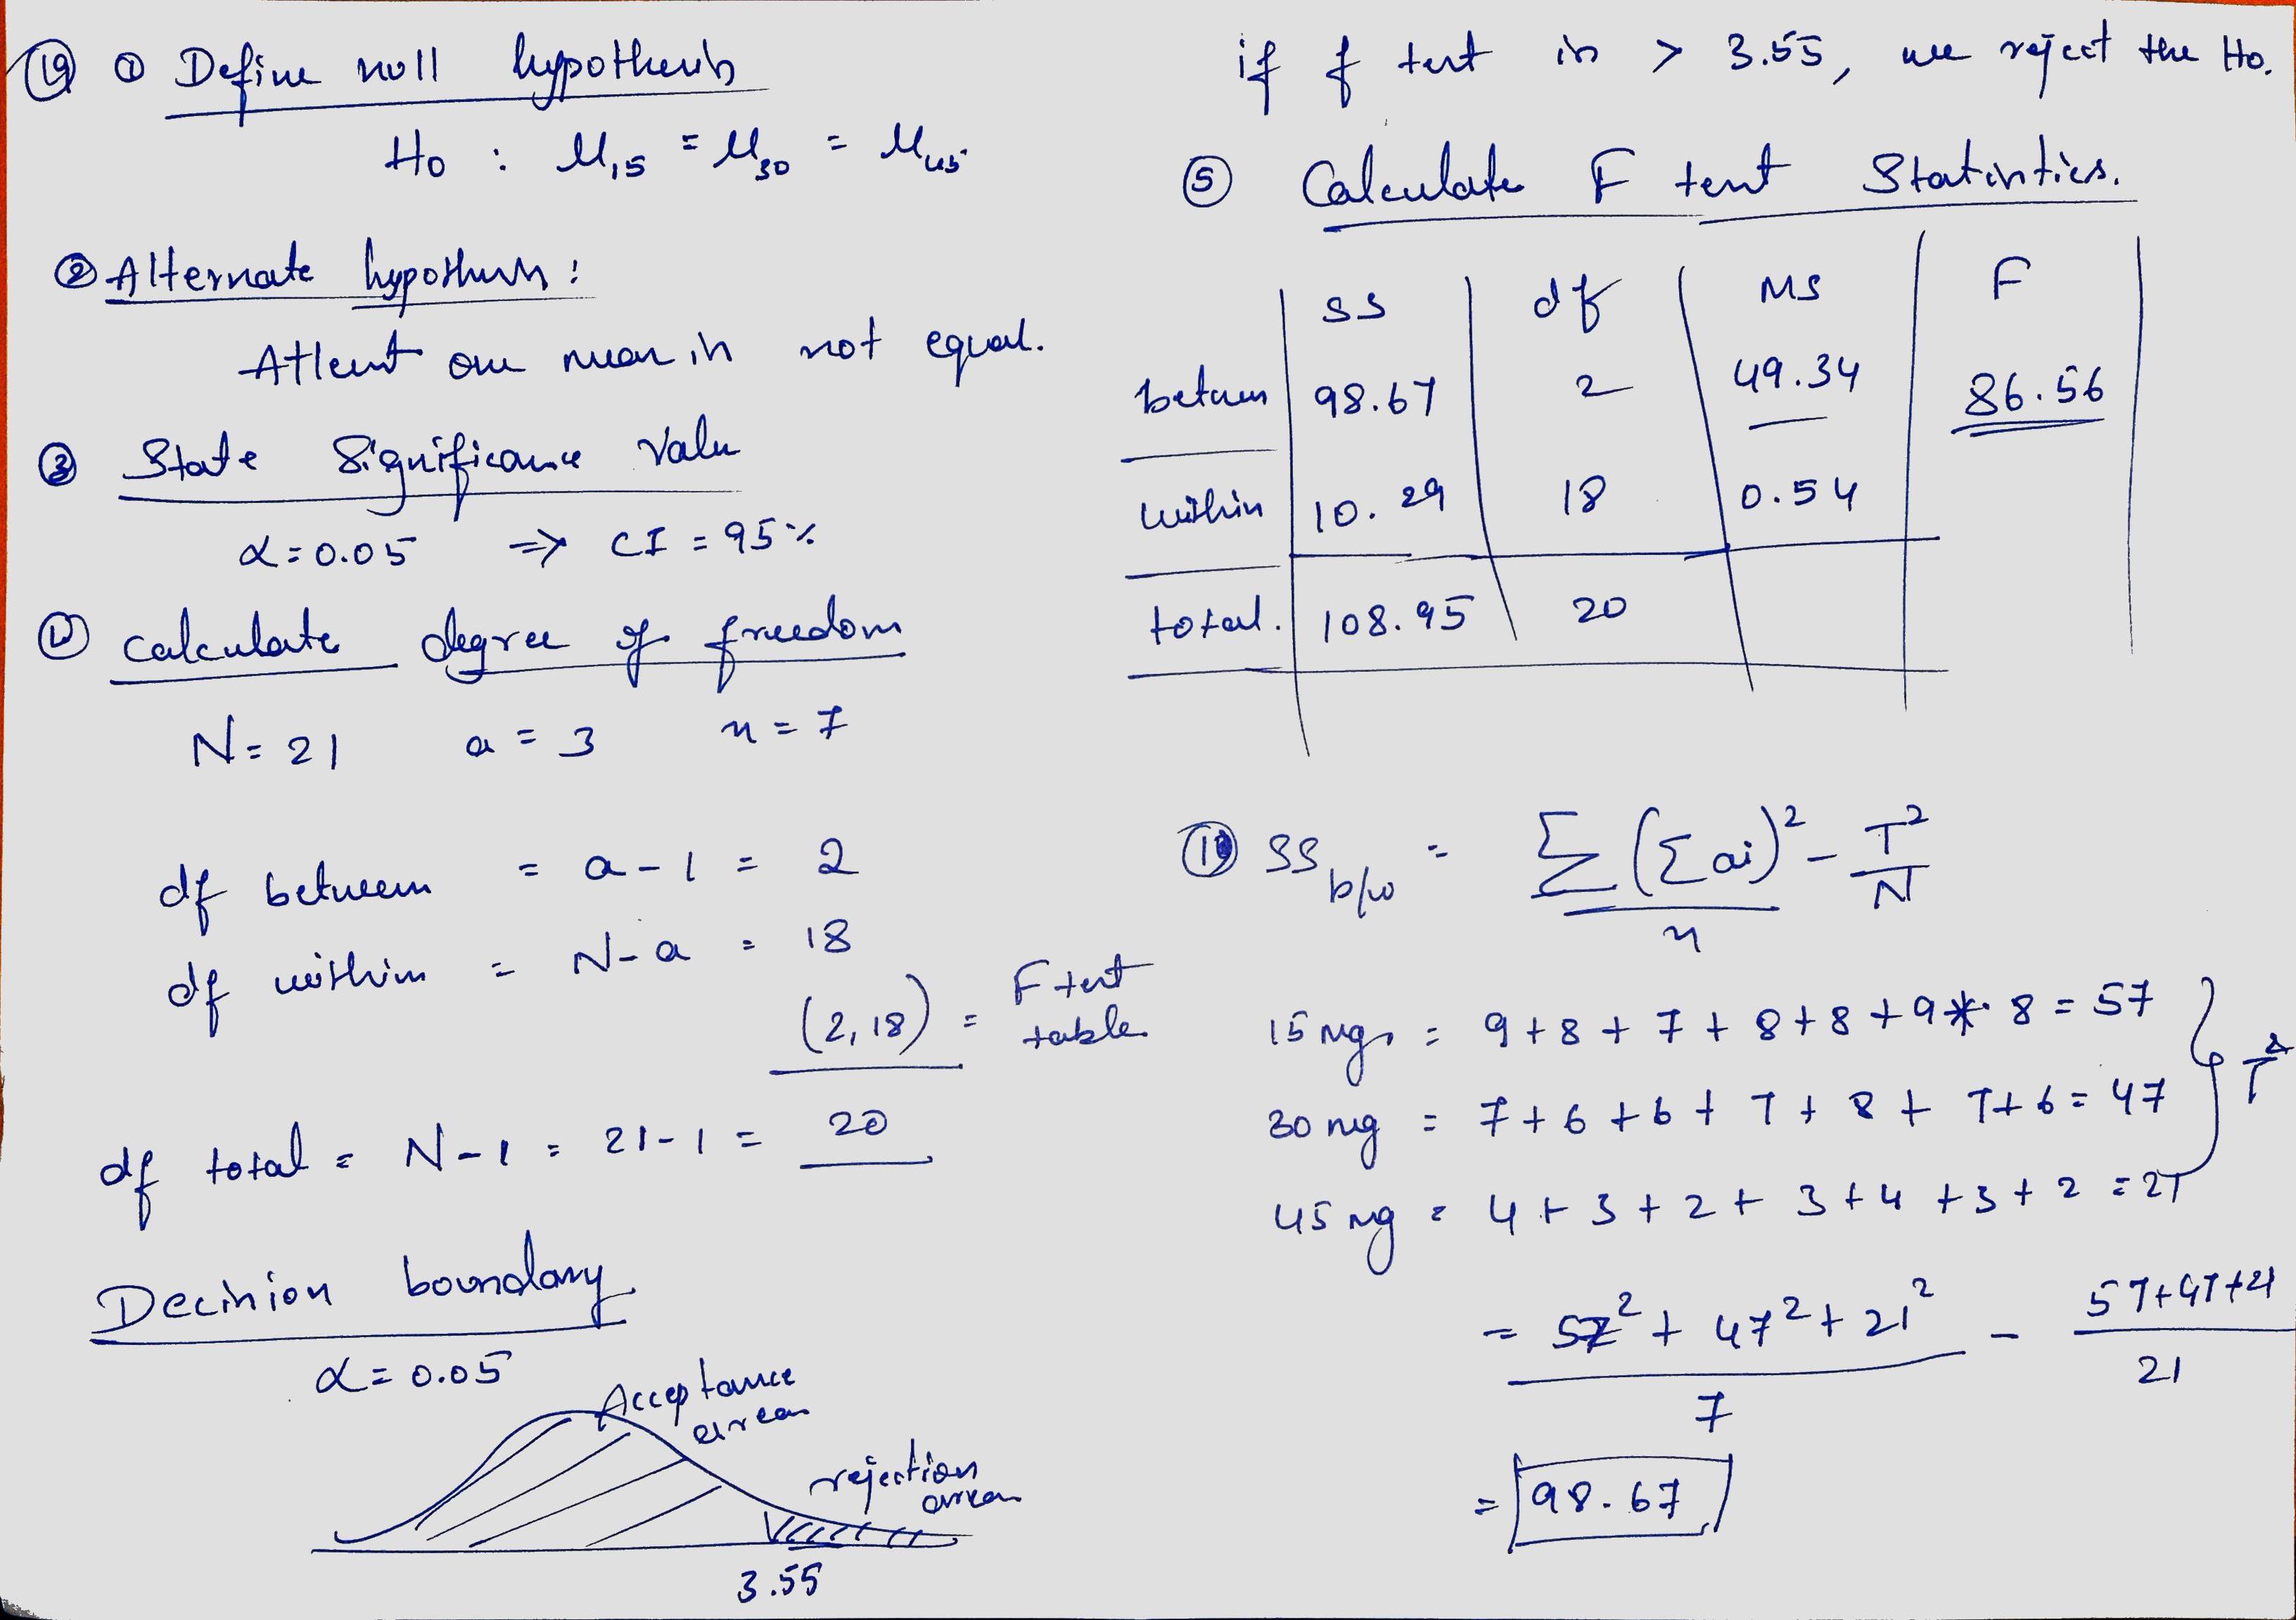 19 ① Define null hypothesis
H0 : μ15 = μ30 = μ45
② Alternate hypothesis :
Atleast one mean is not equal.
③ State Significance Value
α = 0.05 => CI = 95%
④ Calculate degree of freedom
N = 21 a = 3 n = 7
df between = a - 1 = 2
df within = N - a = 18
(2, 18) = F test table
df total = N - 1 = 21 - 1 = 20
Decision boundary
α = 0.05
Acceptance area
rejection area
3.55
if f test is > 3.55, we reject the H0.
⑤ Calculate F test Statistics.
SS df MS F
between 98.67 2 49.34 86.56
within 10.29 18 0.54
total. 108.95 20
① SS b/w = Σ(Σai)² / n - T² / N
15 mg = 9 + 8 + 7 + 8 + 8 + 9 + 8 = 57
30 mg = 7 + 6 + 6 + 7 + 8 + 7 + 6 = 47
T²
45 mg = 4 + 3 + 2 + 3 + 4 + 3 + 2 = 21
= 57² + 47² + 21² / 7 - 57 + 47 + 21 / 21
= 98.67